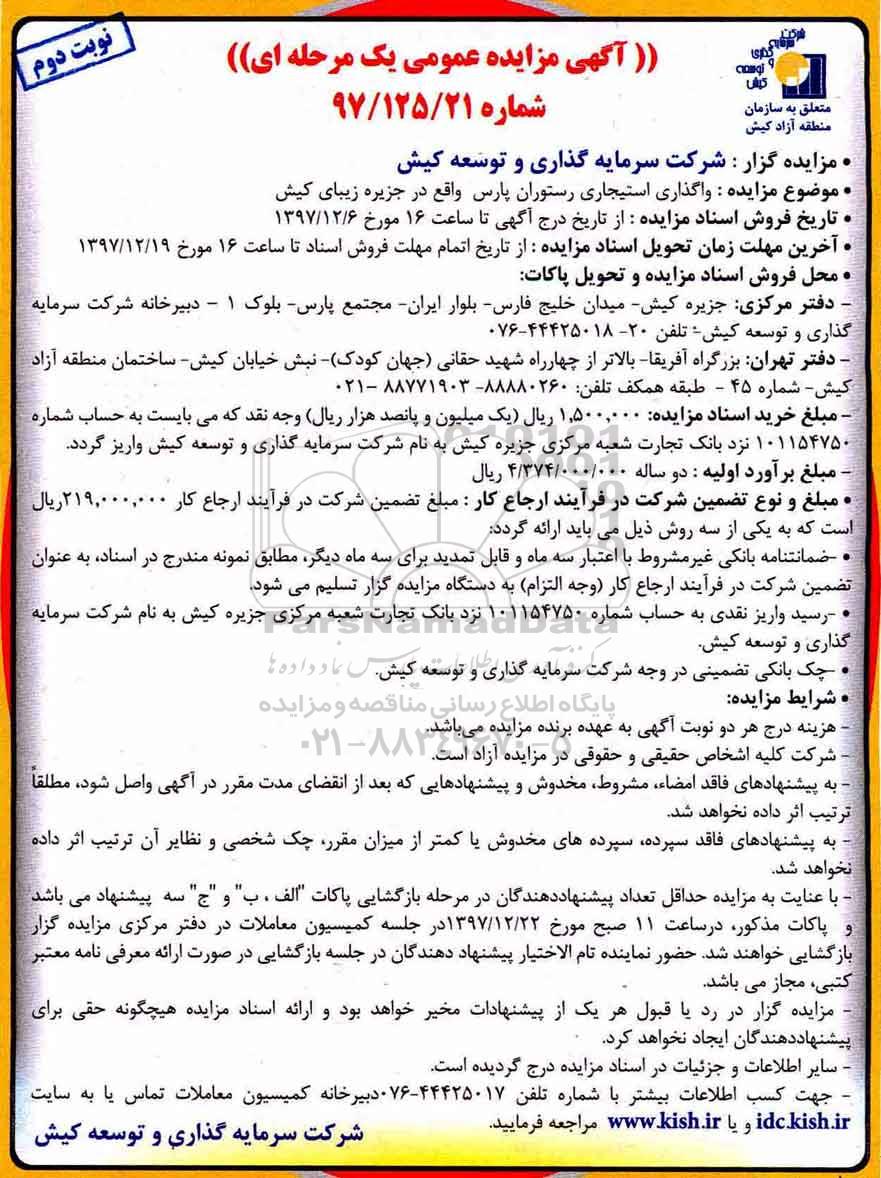 نوبت دوم
شرکت سرمایه گذاری و توسعه کیش
متعلق به سازمان
منطقه آزاد کیش
(( آگهی مزایده عمومی یک مرحله ای))
شماره ۹۷/۱۲۵/۲۱
• مزایده گزار : شرکت سرمایه گذاری و توسعه کیش
• موضوع مزایده : واگذاری استیجاری رستوران پارس واقع در جزیره زیبای کیش
• تاریخ فروش اسناد مزایده : از تاریخ درج آگهی تا ساعت ۱۶ مورخ ۱۳۹۷/۱۲/۶
• آخرین مهلت زمان تحویل اسناد مزایده : از تاریخ اتمام مهلت فروش اسناد تا ساعت ۱۶ مورخ ۱۳۹۷/۱۲/۱۹
• محل فروش اسناد مزایده و تحویل پاکات:
- دفتر مرکزی: جزیره کیش- میدان خلیج فارس- بلوار ایران- مجتمع پارس- بلوک ۱ - دبیرخانه شرکت سرمایه
گذاری و توسعه کیش- تلفن ۲۰- ۴۴۴۲۵۰۱۸-۰۷۶
- دفتر تهران: بزرگراه آفریقا- بالاتر از چهارراه شهید حقانی (جهان کودک)- نبش خیابان کیش- ساختمان منطقه آزاد
کیش- شماره ۴۵ - طبقه همکف تلفن: ۸۸۸۸۰۲۶۰- ۸۸۷۷۱۹۰۳ -۰۲۱
- مبلغ خرید اسناد مزایده: ۱,۵۰۰,۰۰۰ ریال (یک میلیون و پانصد هزار ریال) وجه نقد که می بایست به حساب شماره
۱۰۱۱۵۴۷۵۰ نزد بانک تجارت شعبه مرکزی جزیره کیش به نام شرکت سرمایه گذاری و توسعه کیش واریز گردد.
- مبلغ برآورد اولیه : دو ساله ۴/۳۷۴/۰۰۰/۰۰۰ ریال
• مبلغ و نوع تضمین شرکت در فرآیند ارجاع کار : مبلغ تضمین شرکت در فرآیند ارجاع کار ۲۱۹,۰۰۰,۰۰۰ریال
است که به یکی از سه روش ذیل می باید ارائه گردد:
• -ضمانتنامه بانکی غیرمشروط با اعتبار سه ماه و قابل تمدید برای سه ماه دیگر، مطابق نمونه مندرج در اسناد، به عنوان
تضمین شرکت در فرآیند ارجاع کار (وجه التزام) به دستگاه مزایده گزار تسلیم می شود.
• -رسید واریز نقدی به حساب شماره ۱۰۱۱۵۴۷۵۰ نزد بانک تجارت شعبه مرکزی جزیره کیش به نام شرکت سرمایه
گذاری و توسعه کیش.
ParsNamadData
• -چک بانکی تضمینی در وجه شرکت سرمایه گذاری و توسعه کیش.
• شرایط مزایده:
پایگاه اطلاع رسانی مناقصه و مزایده
- هزینه درج هر دو نوبت آگهی به عهده برنده مزایده می‌باشد.
۰۲۱-۸۸۳۴۹۶۷۰-۵
- شرکت کلیه اشخاص حقیقی و حقوقی در مزایده آزاد است.
- به پیشنهادهای فاقد امضاء، مشروط، مخدوش و پیشنهادهایی که بعد از انقضای مدت مقرر در آگهی واصل شود، مطلقاً
ترتیب اثر داده نخواهد شد.
- به پیشنهادهای فاقد سپرده، سپرده های مخدوش یا کمتر از میزان مقرر، چک شخصی و نظایر آن ترتیب اثر داده
نخواهد شد.
- با عنایت به مزایده حداقل تعداد پیشنهاددهندگان در مرحله بازگشایی پاکات "الف ، ب" و "ج" سه پیشنهاد می باشد
و پاکات مذکور، درساعت ۱۱ صبح مورخ ۱۳۹۷/۱۲/۲۲در جلسه کمیسیون معاملات در دفتر مرکزی مزایده گزار
بازگشایی خواهند شد. حضور نماینده تام الاختیار پیشنهاد دهندگان در جلسه بازگشایی در صورت ارائه معرفی نامه معتبر
کتبی، مجاز می باشد.
- مزایده گزار در رد یا قبول هر یک از پیشنهادات مخیر خواهد بود و ارائه اسناد مزایده هیچگونه حقی برای
پیشنهاددهندگان ایجاد نخواهد کرد.
- سایر اطلاعات و جزئیات در اسناد مزایده درج گردیده است.
- جهت کسب اطلاعات بیشتر با شماره تلفن ۴۴۴۲۵۰۱۷-۰۷۶دبیرخانه کمیسیون معاملات تماس یا به سایت
idc.kish.ir و یا www.kish.ir مراجعه فرمایید.
شرکت سرمایه گذاری و توسعه کیش